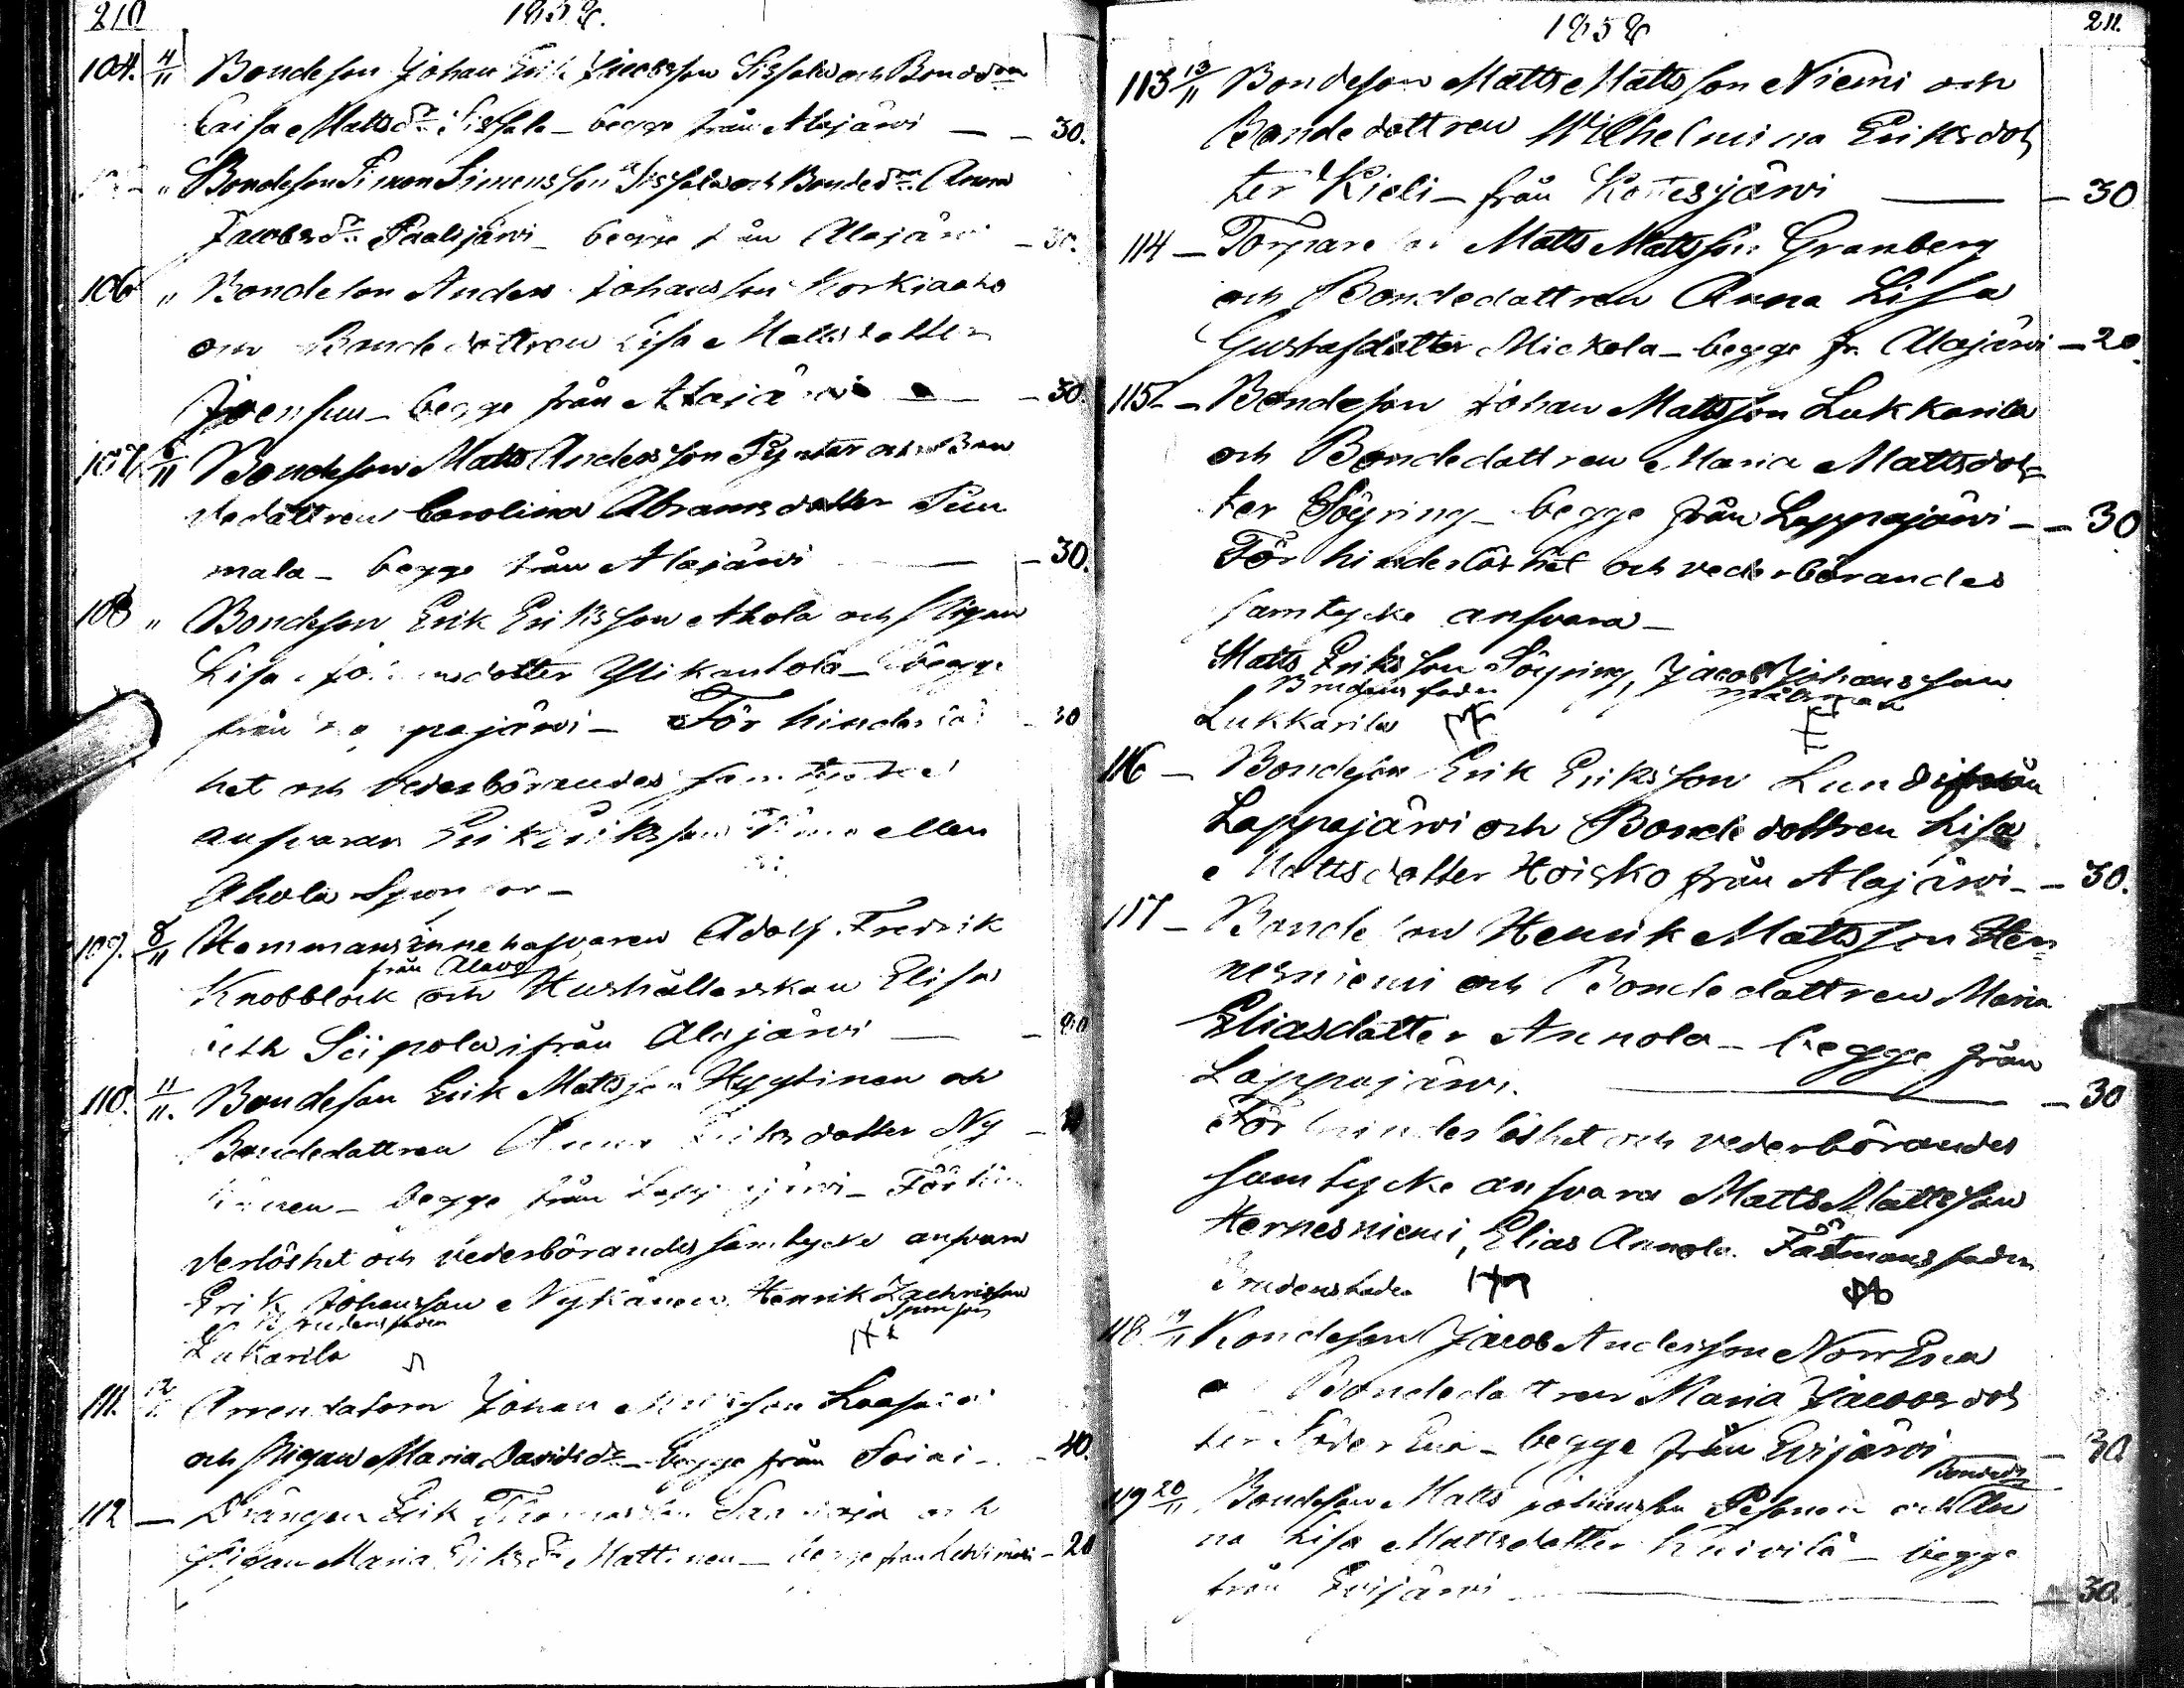 210
1858.
104. 4/11 Bondeson Johan Erik Jacobsson Sissala och Bonded:n
Caisa Matts d:r Sissala - begge från Alajärwi - - 30.
" Bondeson Simon Simonsson Sissala och Bonded:n Anna
Jacobsd:r Paalijärwi - begge från Alajärwi - 30.
106 " Bondeson Anders Johansson Korkiaaho
och Bondedottren Lisa Mattsdotter
Joensuu - begge från Alajärwi - - 30.
107 6/11 Bondeson Matts Andersson och Bon
dedottren Carolina Abramsdotter Tim
mala - begge från Alajärwi - 30.
108 " Bondeson Erik Eriksson Ahola och Pigan
Lisa Johansdotter Ylikantola - begge
från Lappajärwi - För hinderlös - 30
het och vederbörandes samtycke
ansvarar Erik Eriksson
Ahola Sponsor -
109. 8/11 Hemmansinnehafvaren Adolf Fredrik
från Alavo
Knobblock och Hushållerskan Elisa
beth Siipola ifrån Alajärwi -
110. 11/11. Bondeson Erik Mattsson Hyytinen och
Bondedottren Anna Eriksdotter Ny
känen - begge från Lappajärwi - För hin
derlöshet och vederbörandes samtycke ansvara
Erik Johansson Nykänen, Henrik Zachrisson
Brudens fader Sponsor
Lukarila
111. 12/11 Arrendatorn Johan
och Pigan Maria Davidsd:r - begge från Soini - - 40.
112 - Drängen Erik Thomasson och
Pigan Maria Eriksd:r Mattinen - begge från Lehtimäki - 20
1858
211.
113 13/11 Bondeson Matts Mattsson Niemi och
Bondedottren Wilhelmina Eriksdot
ter Kieli - från Kortesjärwi - 30
114 - Torpareson Matts Mattsson Granberg
och Bondedottren Anna Lisa
Gustafsdotter Mickola - begge fr. Alajärwi - 20.
115 - Bondeson Johan Mattsson Lukkarila
och Bondedottren Maria Mattsdot
ter Söyring - begge från Lappajärwi - - 30
För hinderlöshet och vederbörandes
samtycke ansvara -
Matts Eriksson Söyring, Jacob Johansson
Brudens fader
Lukkarila
116 - Bondeson Erik Eriksson Lund ifrån
Lappajärwi och Bondedottren Lisa
Mattsdotter Hoisko från Alajärwi - - 30.
117 - Bondeson Henrik Mattsson Her
nesniemi och Bondedottren Maria
Eliasdotter Annola - begge från
Lappajärwi. - 30
För hinderlöshet och vederbörandes
samtycke ansvara Matts Mattsson
Hernesniemi, Elias Annola. Fästmans fader
Brudens fader
118 19/11 Bondeson Jacob Andersson Norr Ena
o Bondedottren Maria Jacobsdot
ter Söder Ena - begge från Evijärwi - 30
Bonded:n
119 20/11 Bondeson Matts Johansson Pesonen och An
na Lisa Mattsdotter Kuivilä - begge
från Evijärwi - 30.